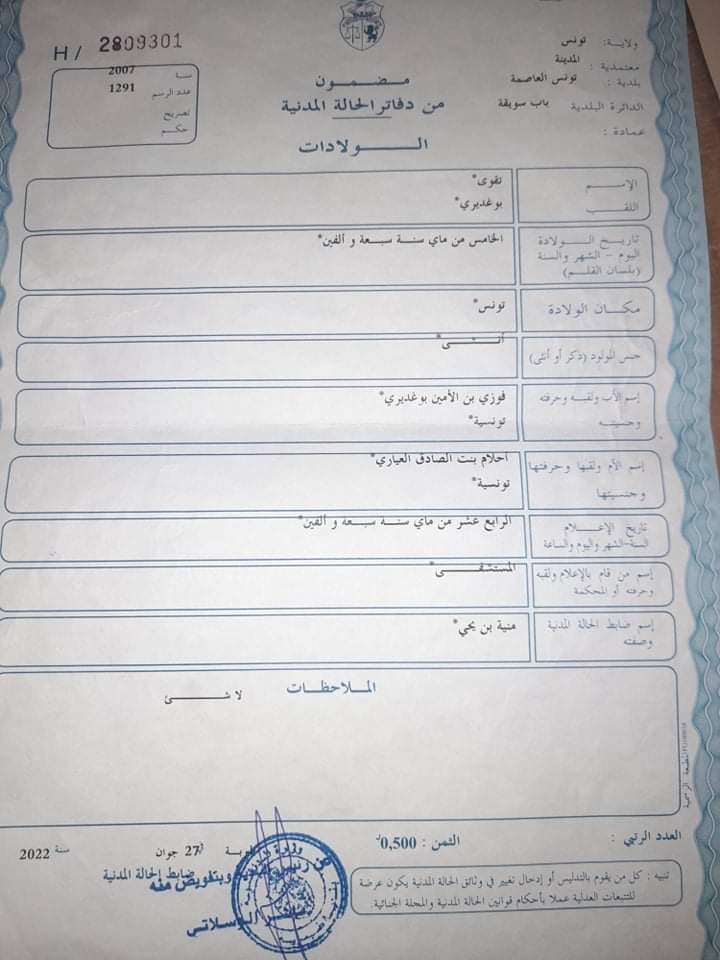 ولاية : تونس
معتمدية : المدينة
بلدية : تونس العاصمة
الدائرة البلدية باب سويقة
عمادة :
H / 2809301
سنة 2007
عدد الرسم 1291
تصريح
حكم
مضمون
من دفاتر الحالة المدنية
الـولادات
الإسم تقوى*
اللقب بوغديري*
تاريخ الولادة الخامس من ماي سنة سبعة و ألفين*
اليوم - الشهر والسنة
(بلسان القلم)
مكان الولادة تونس*
جنس المولود (ذكر أو أنثى) أنثى*
إسم الأب ولقبه وحرفته فوزي بن الأمين بوغديري*
وجنسيته تونسية*
إسم الأم ولقبها وحرفتها أحلام بنت الصادق العياري*
وجنسيتها تونسية*
تاريخ الإعلام الرابع عشر من ماي سنة سبعة و ألفين*
السنة-الشهر واليوم والساعة
إسم من قام بالإعلام ولقبه المستشفى*
وحرفته أو المحكمة
إسم ضابط الحالة المدنية منية بن يحي*
وصفته
الملاحظات
لا شئ
المطبعة الرسمية
العدد الرتبي :
الثمن : 0,500د
27 جوان سنة 2022
ضابط الحالة المدنية
وبتفويض منه
تنبيه : كل من يقوم بالتدليس أو إدخال تغيير في وثائق الحالة المدنية يكون عرضة
للتتبعات العدلية عملا بأحكام قوانين الحالة المدنية والمجلة الجنائية.